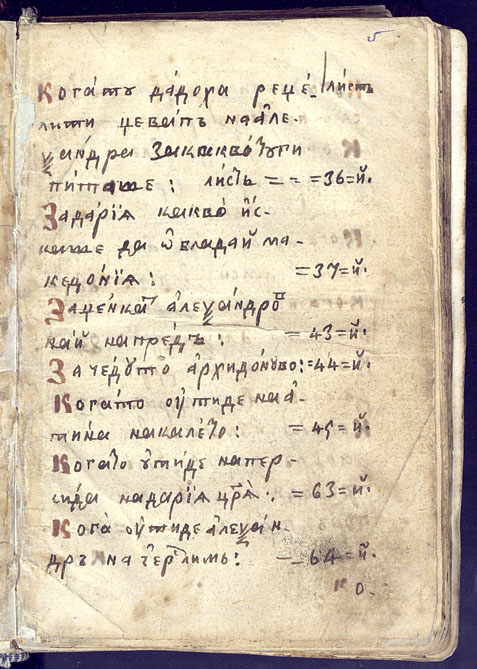 Когату дадоха реме- листь
лити џевапъ наале-
ѯандра закакво ги
питаше: листъ = - =36=й·
Задария какво ис-
каше да ѡвладай ма-
кедония: =37=й·
За алеѯандро
кай напредъ: =43=й·
За чедуто архидонуво: =44=й·
Когато ѹтиде наа-
тина накалето: =45=й·
Когато ѹтиде напер-
сида надария црѧ ·. =63=й·
Кога ѹтиде алеѯан-
дръ на іерⷭлимь: =-64=й·
ко-